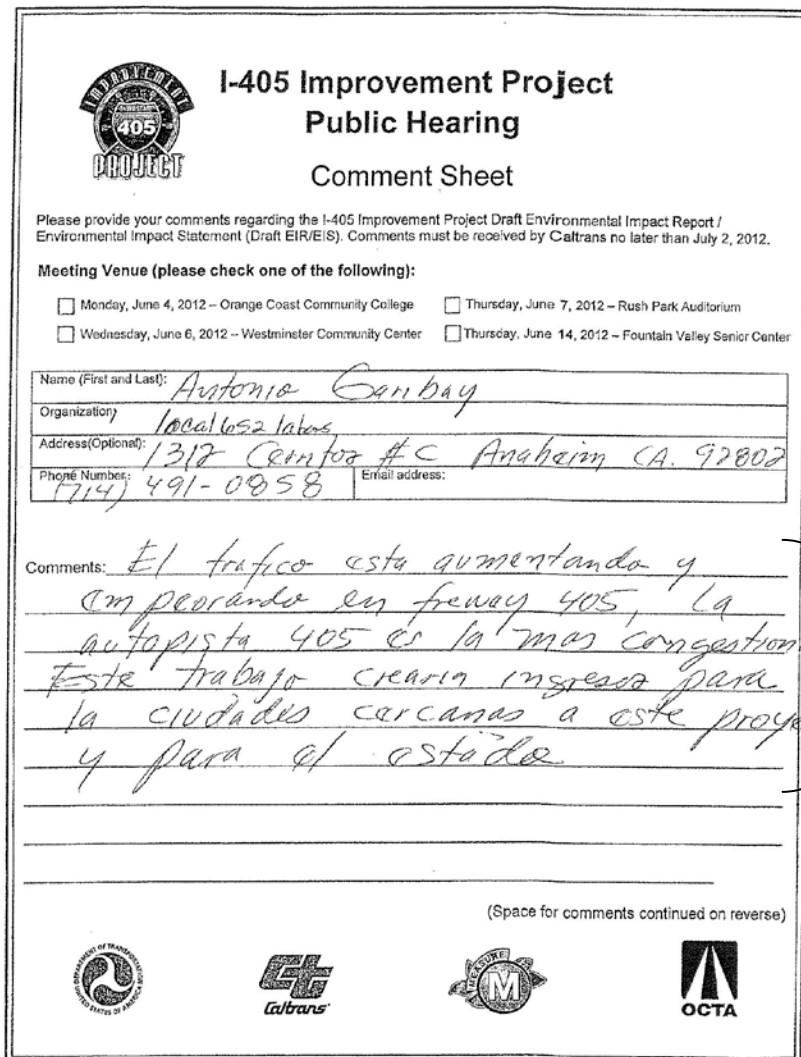 IMPROVEMENT
405
PROJECT
I-405 Improvement Project
Public Hearing
Comment Sheet
Please provide your comments regarding the I-405 Improvement Project Draft Environmental Impact Report /
Environmental Impact Statement (Draft EIR/EIS). Comments must be received by Caltrans no later than July 2, 2012.
Meeting Venue (please check one of the following):
Monday, June 4, 2012 – Orange Coast Community College
Thursday, June 7, 2012 – Rush Park Auditorium
Wednesday, June 6, 2012 – Westminster Community Center
Thursday, June 14, 2012 – Fountain Valley Senior Center
Name (First and Last): Antonio Garibay
Organization: local 652
Address(Optional): 1312 #C Anaheim CA. 92802
Phone Number: (714) 491-0858
Email address:
Comments: El trafico esta aumentando y
empeorando en freway 405, La
autopista 405 es la mas congestion
Este trabajo crearia ingresos para
la ciudades cercanas a este proye
y para el estado
(Space for comments continued on reverse)
DEPARTMENT OF TRANSPORTATION
UNITED STATES OF AMERICA
Caltrans
MEASURE
M
OCTA